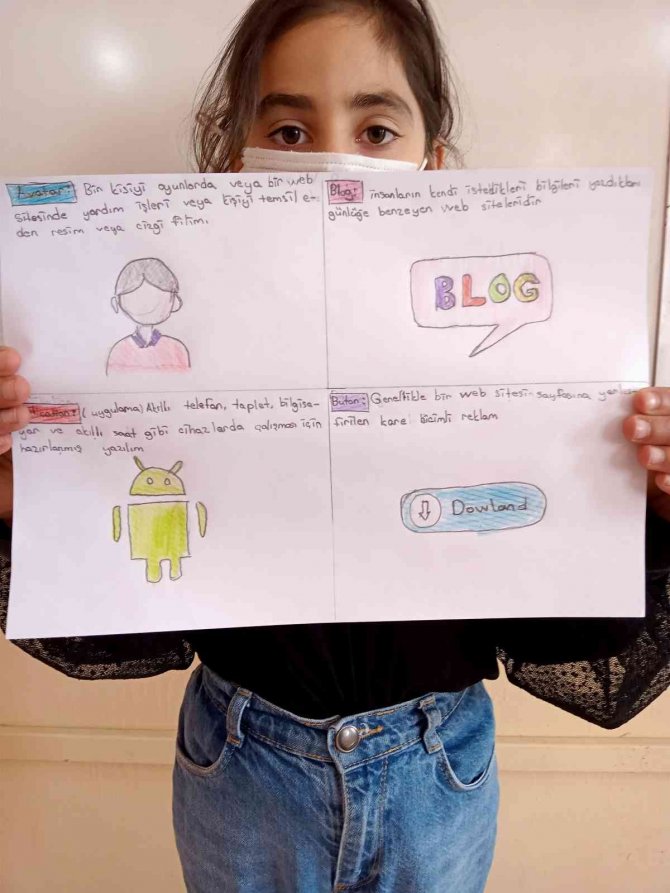 Avatar: Bir kişiyi oyunlarda veya bir web
sitesinde yardım işleri veya kişiyi temsil e-
den resim veya çizgi filim.
Blog: insanların kendi istedikleri bilgileri yazdıkları
günlüğe benzeyen web siteleridir
BLOG
(uygulama) Akıllı telefon, taplet, bilgisa-
yar ve akıllı saat gibi cihazlarda çalışması için
hazırlanmış yazılım
Buton: Genellikle bir web sitesin sayfasına
tirilen kare biçimli reklam
Dowland